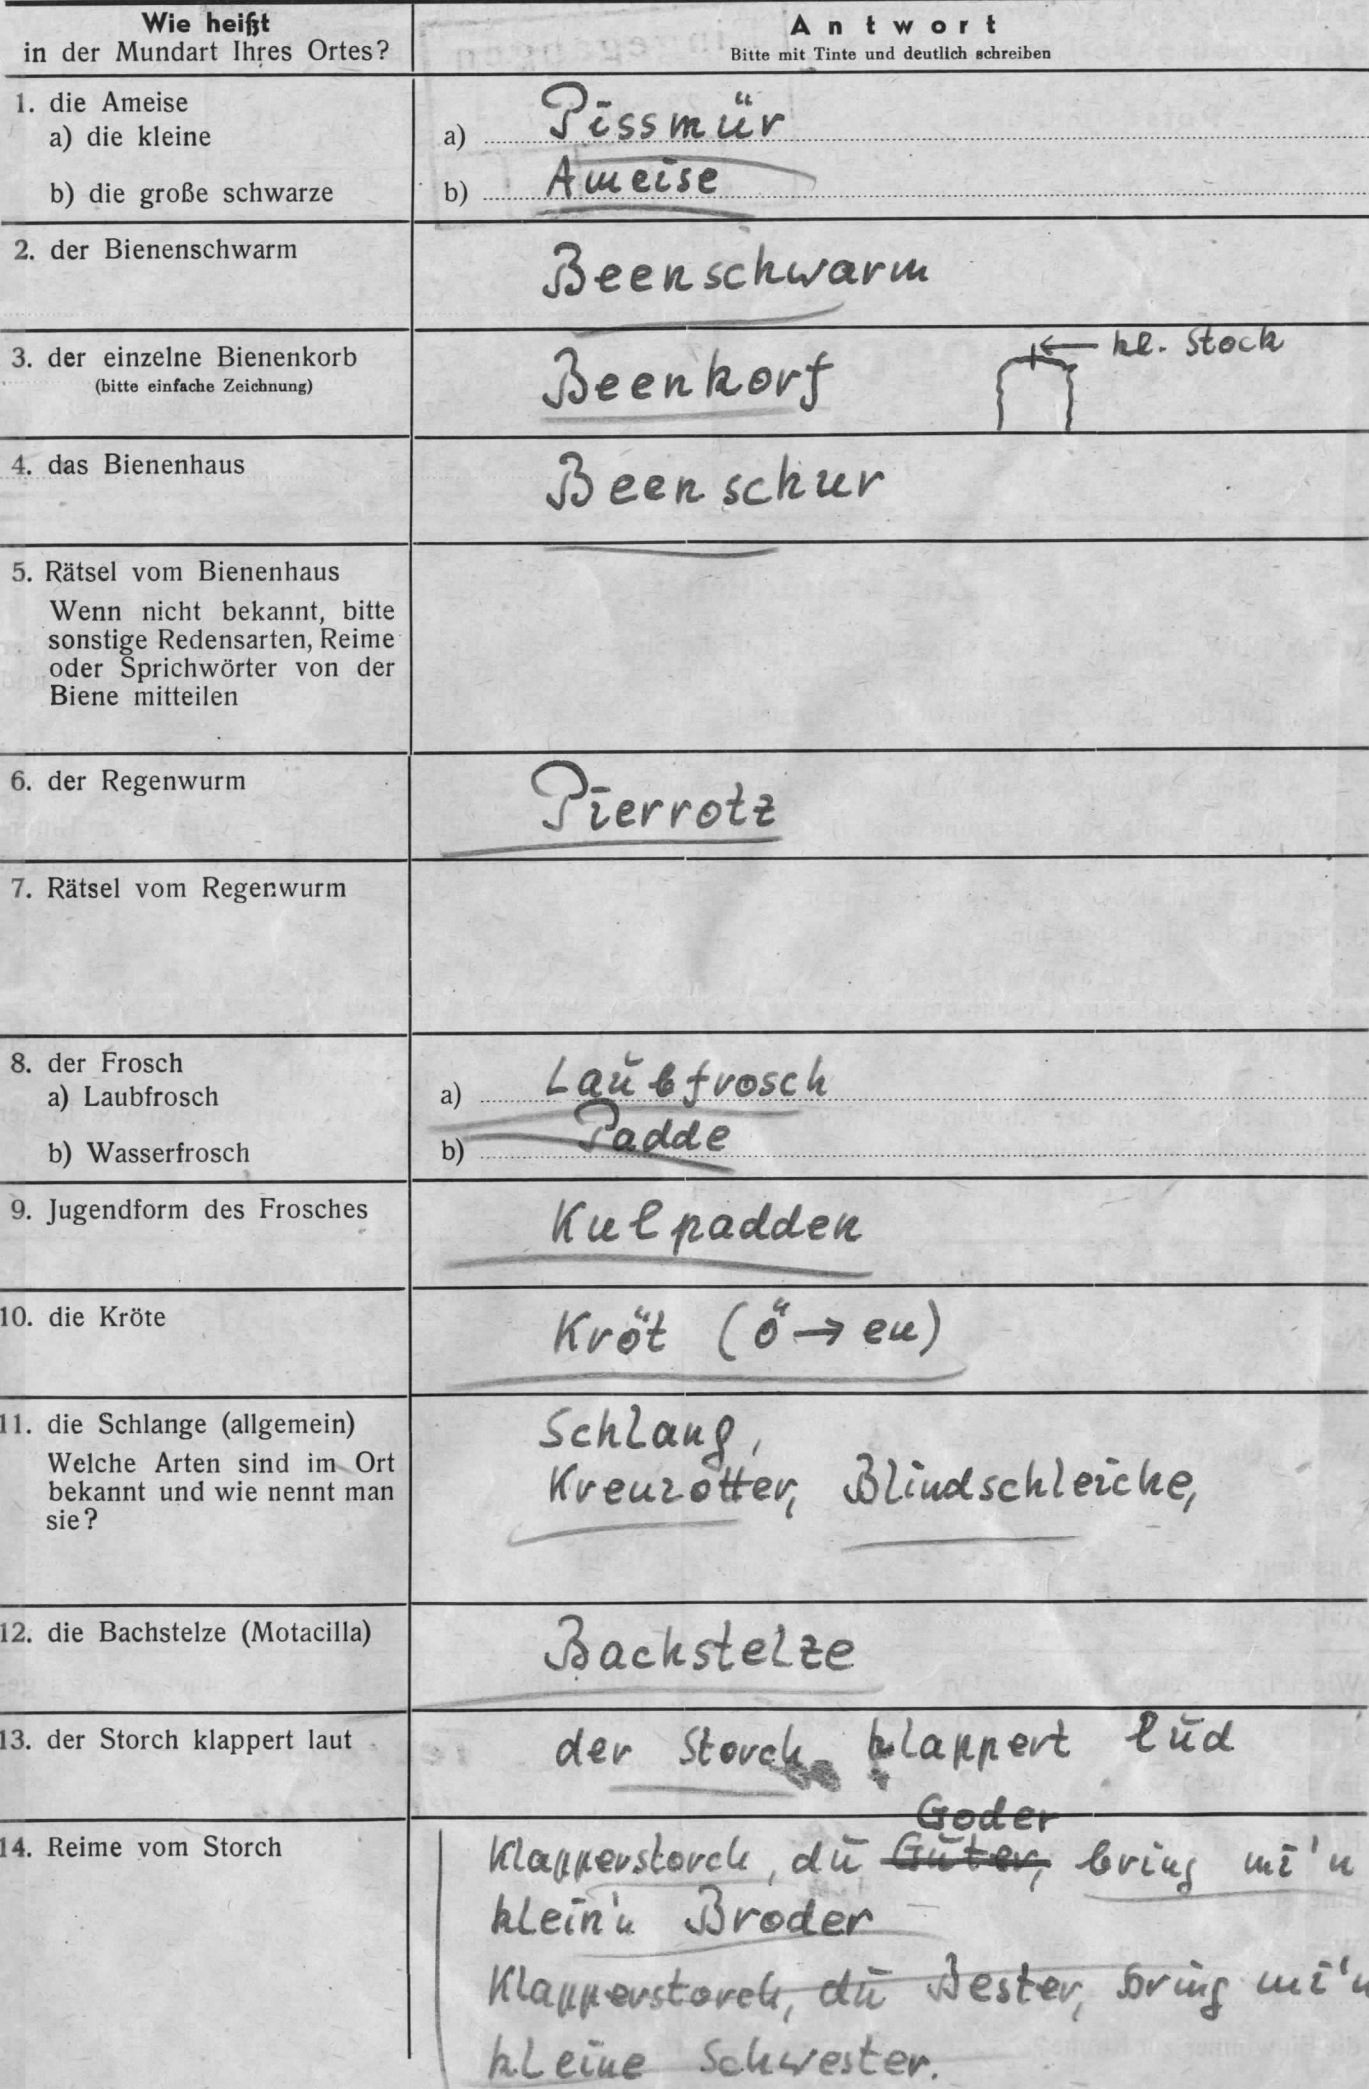 Wie heißt
in der Mundart Ihres Ortes?
Antwort
Bitte mit Tinte und deutlich schreiben
1. die Ameise
a) die kleine
a) Pissmür
b) die große schwarze
b) Ameise
2. der Bienenschwarm
Beenschwarm
3. der einzelne Bienenkorb
(bitte einfache Zeichnung)
Beenkorf
kl. Stock
4. das Bienenhaus
Beenschur
5. Rätsel vom Bienenhaus
Wenn nicht bekannt, bitte
sonstige Redensarten, Reime
oder Sprichwörter von der
Biene mitteilen
6. der Regenwurm
Pierrotz
7. Rätsel vom Regenwurm
8. der Frosch
a) Laubfrosch
a) Laubfrosch
b) Wasserfrosch
b) Padde
9. Jugendform des Frosches
Kulpadden
10. die Kröte
Kröt (ö → eu)
11. die Schlange (allgemein)
Welche Arten sind im Ort
bekannt und wie nennt man
sie?
Schlang,
Kreuzotter, Blindschleiche,
12. die Bachstelze (Motacilla)
Bachstelze
13. der Storch klappert laut
der Storch klappert lūd
14. Reime vom Storch
Goder
Klapperstorch, dū Guter, bring mī'n
klein'n Broder
Klapperstorch, dū Bester, bring mī'n
kleine Schwester.